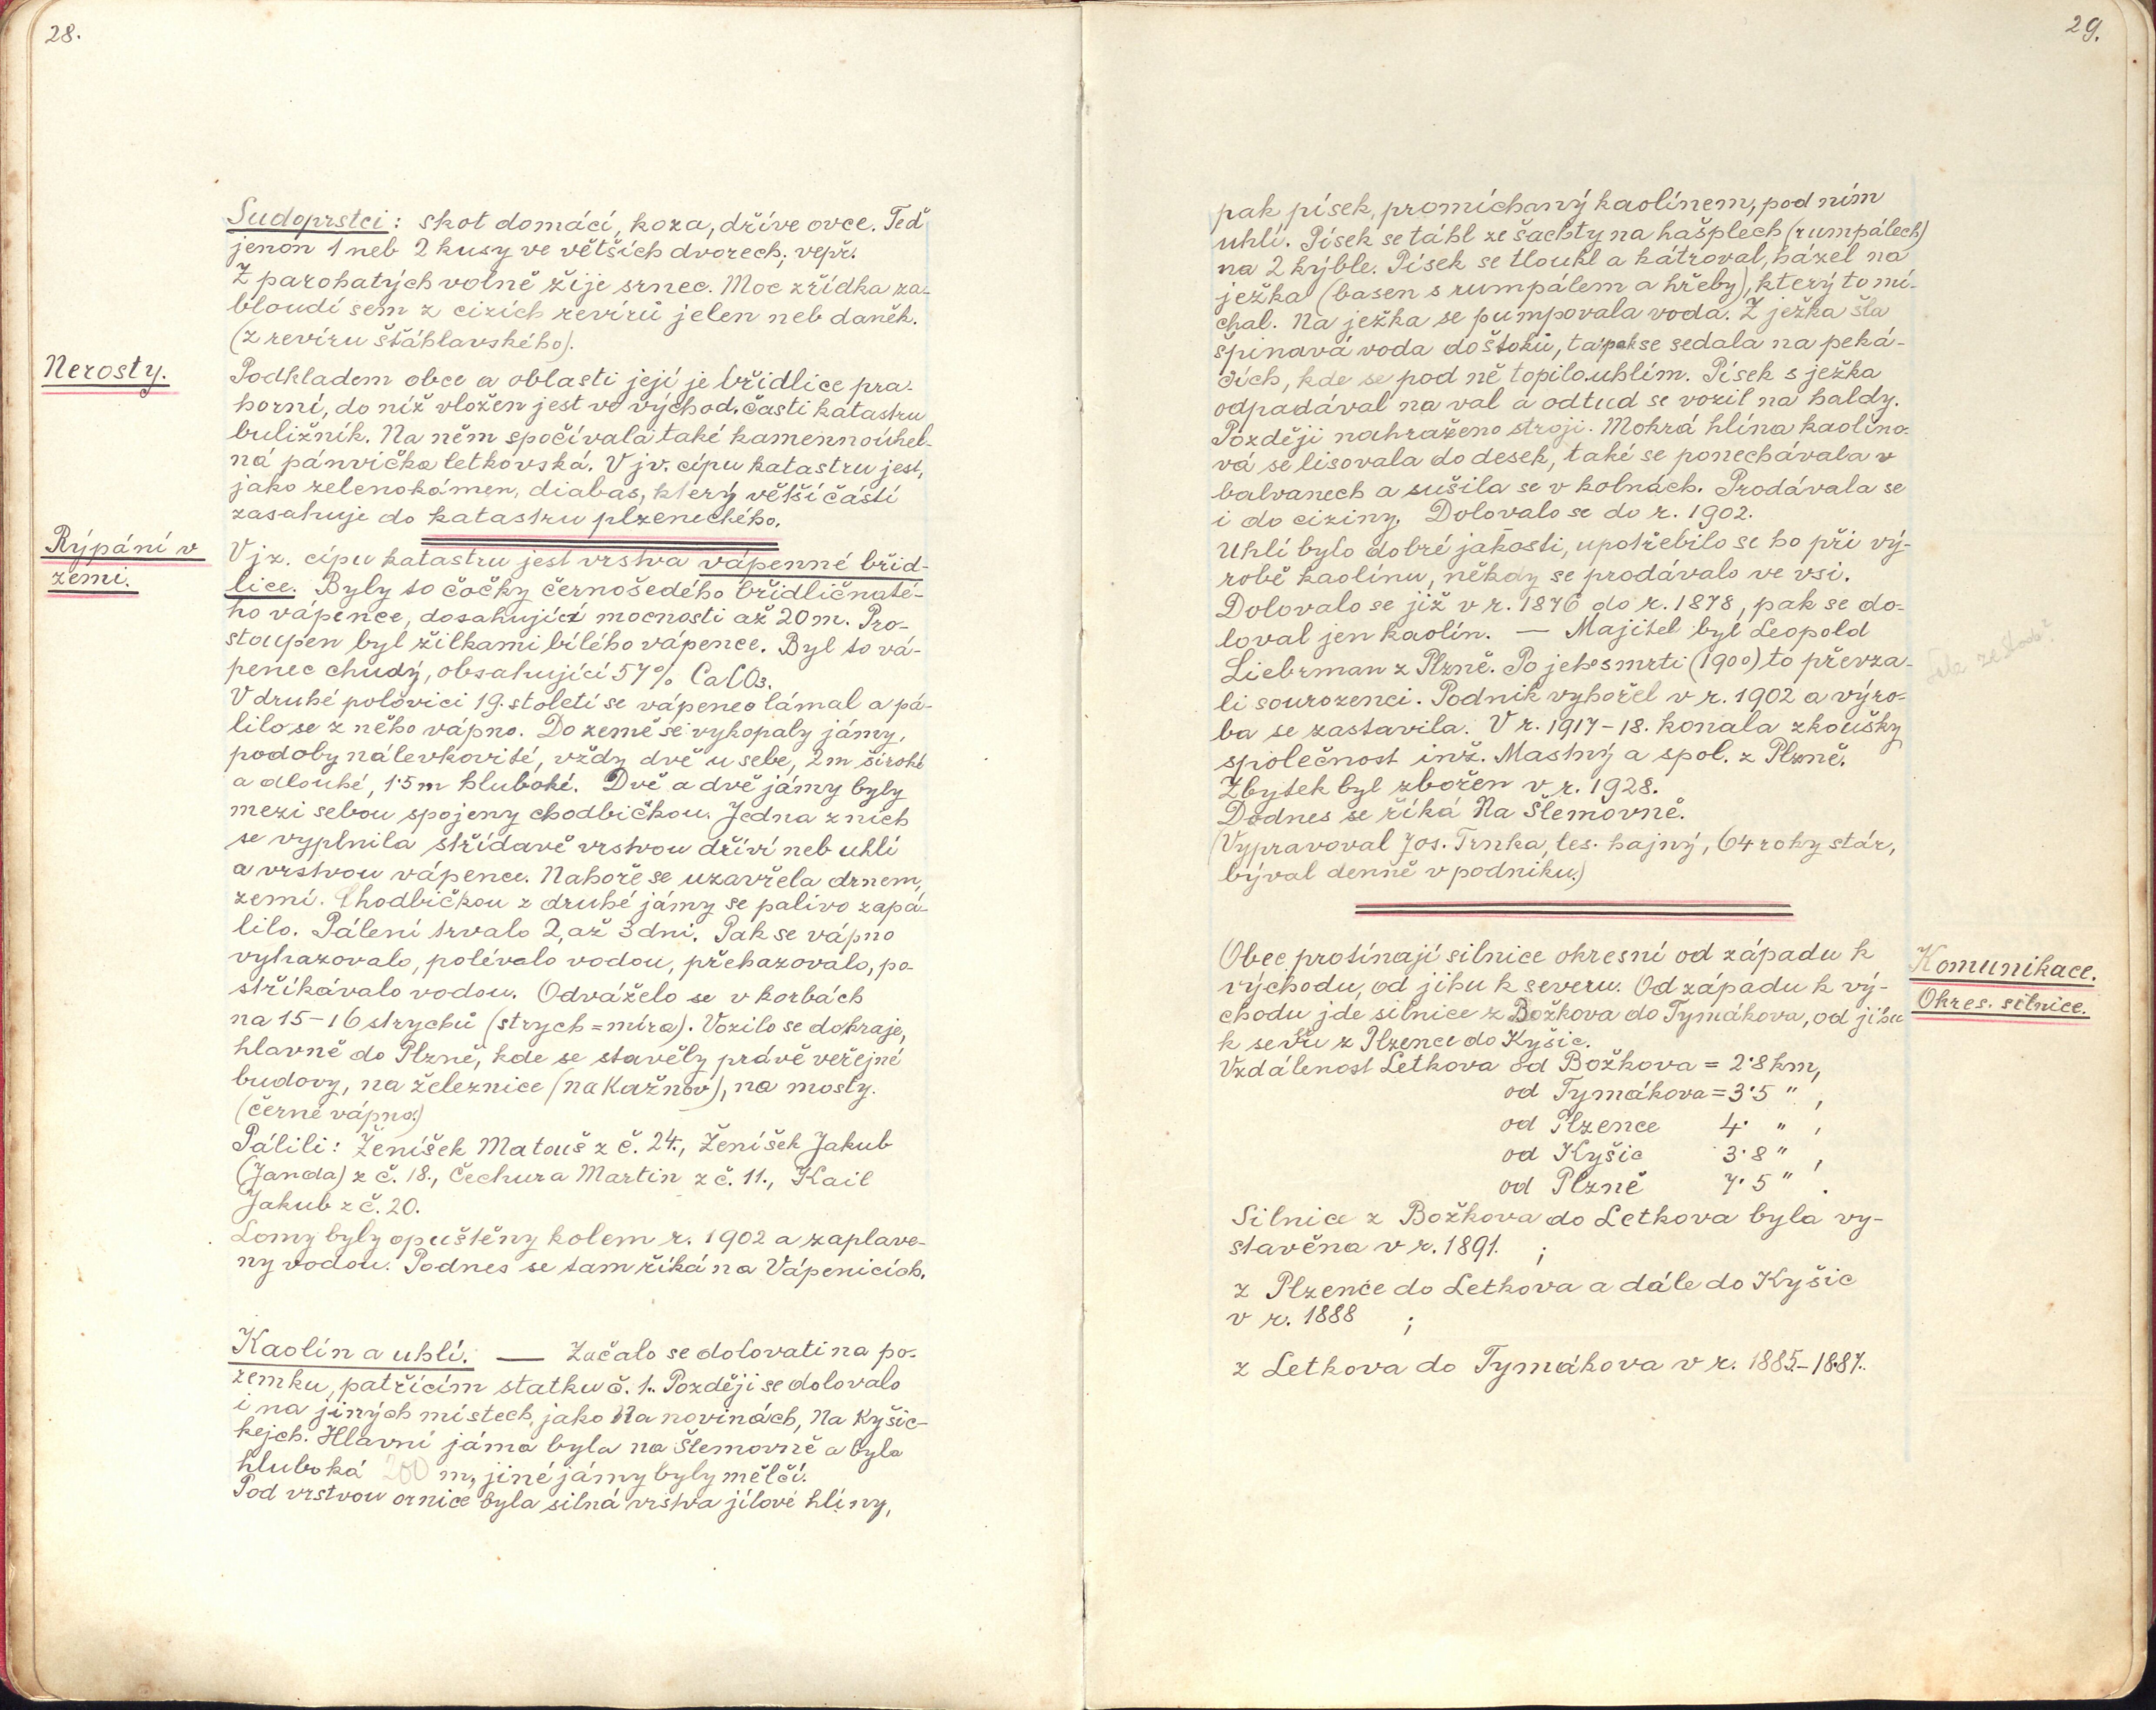 28.
Sudoprstci: skot domácí, koza, dříve ovce. Teď
jenon 1 neb 2 kusy ve větších dvorech; vepř.
Z parohatých volně žije srnec. Moc zřídka za-
bloudí sem z cizích revírů jelen neb daněk.
(z revíru štáhlavského).
Nerosty.
Podkladem obce a oblasti její je břidlice pra-
horní, do níž vložen jest ve východ. časti katastru
buližník. Na něm spočívala také kamennoúhel-
ná pánvička letkovská. V jv. cípu katastru jest,
jako zelenokámen, diabas, který větší částí
zasahuje do katastru plzeneckého.
Rýpání v
zemi.
V jz. cípu katastru jest vrstva vápenné břid-
lice. Byly to čočky černošedého břidličnaté-
ho vápence, dosahující mocnosti až 20 m. Pro-
stoupen byl žilkami bílého vápence. Byl to vá-
penec chudý, obsahující 57% CaCO3.
V druhé polovici 19. století se vápenec lámal a pá-
lilo se z něho vápno. Do země se vykopaly jámy,
podoby nálevkovité, vždy dvě u sebe, 2 m široké
a dlouhé, 1·5 m hluboké. Dvě a dvě jámy byly
mezi sebou spojeny chodbičkou. Jedna z nich
se vyplnila střídavě vrstvou dříví neb uhlí
a vrstvou vápence. Nahoře se uzavřela drnem,
zemí. Chodbičkou z druhé jámy se palivo zapá-
lilo. Pálení trvalo 2, až 3 dni. Pak se vápno
vyhazovalo, polévalo vodou, přehazovalo, po-
stříkávalo vodou. Odváželo se v korbách
na 15-16 strychů (strych = míra). Vozilo se do kraje,
hlavně do Plzně, kde se stavěly právě veřejné
budovy, na železnice (na Kažnov), na mosty.
(černé vápno.)
Pálili: Ženíšek Matouš z č. 24., Ženíšek Jakub
(Janda) z č. 18., Čechura Martin z č. 11., Kail
Jakub z č. 20.
Lomy byly opuštěny kolem r. 1902 a zaplave-
ny vodou. Podnes se tam říká na Vápenicích.
Kaolín a uhlí. — Začalo se dolovati na po-
zemku, patřícím statku č. 1.. Později se dolovalo
i na jiných místech, jako Na novinách, Na Kyšic-
kejch. Hlavní jáma byla na Šlemovně a byla
hluboká 200 m, jiné jámy byly mělčí.
Pod vrstvou ornice byla silná vrstva jílové hlíny,
29.
pak písek, promíchaný kaolínem, pod ním
uhlí. Písek se táhl ze šachty na hašplech (rumpálech)
na 2 kýble. Písek se tloukl a kátroval, házel na
ježka (basen s rumpálem a hřeby), který to mí-
chal. Na ježka se pumpovala voda. Z ježka šla
špinavá voda do štoků, ta pak se sedala na peká-
čích, kde se pod ně topilo uhlím. Písek s ježka
odpadával na val a odtud se vozil na haldy.
Později nahraženo stroji. Mokrá hlína kaolíno-
vá se lisovala do desek, také se ponechávala v
balvanech a sušila se v kolnách. Prodávala se
i do ciziny. Dolovalo se do r. 1902.
Uhlí bylo dobré jakosti, upotřebilo se ho při vý-
robě kaolínu, někdy se prodávalo ve vsi.
Dolovalo se již v r. 1876 do r. 1878, pak se do-
loval jen kaolín. — Majitel byl Leopold
Liebrman z Plzně. Po jeho smrti (1900) to převza-
li sourozenci. Podnik vyhořel v r. 1902 a výro-
ba se zastavila. V r. 1917-18. konala zkoušky
společnost inž. Mastný a spol. z Plzně.
Zbytek byl zbořen v r. 1928.
Dodnes se říká Na Šlemovně.
(Vypravoval Jos. Trnka, les. hajný, 64 roky stár,
býval denně v podniku.)
Komunikace.
Okres. silnice.
Obec protínají silnice okresní od západu k
východu, od jihu k severu. Od západu k vý-
chodu jde silnice z Božkova do Tymákova, od jihu
k sevru z Plzence do Kyšic.
Vzdálenost Letkova od Božkova = 2·8 km,
od Tymákova = 3·5 " ,
od Plzence 4· " ,
od Kyšic 3·8 " ,
od Plzně 7·5 " .
Silnice z Božkova do Letkova byla vy-
stavěna v r. 1891. ;
z Plzence do Letkova a dále do Kyšic
v r. 1888 ;
z Letkova do Tymákova v r. 1885-1887.